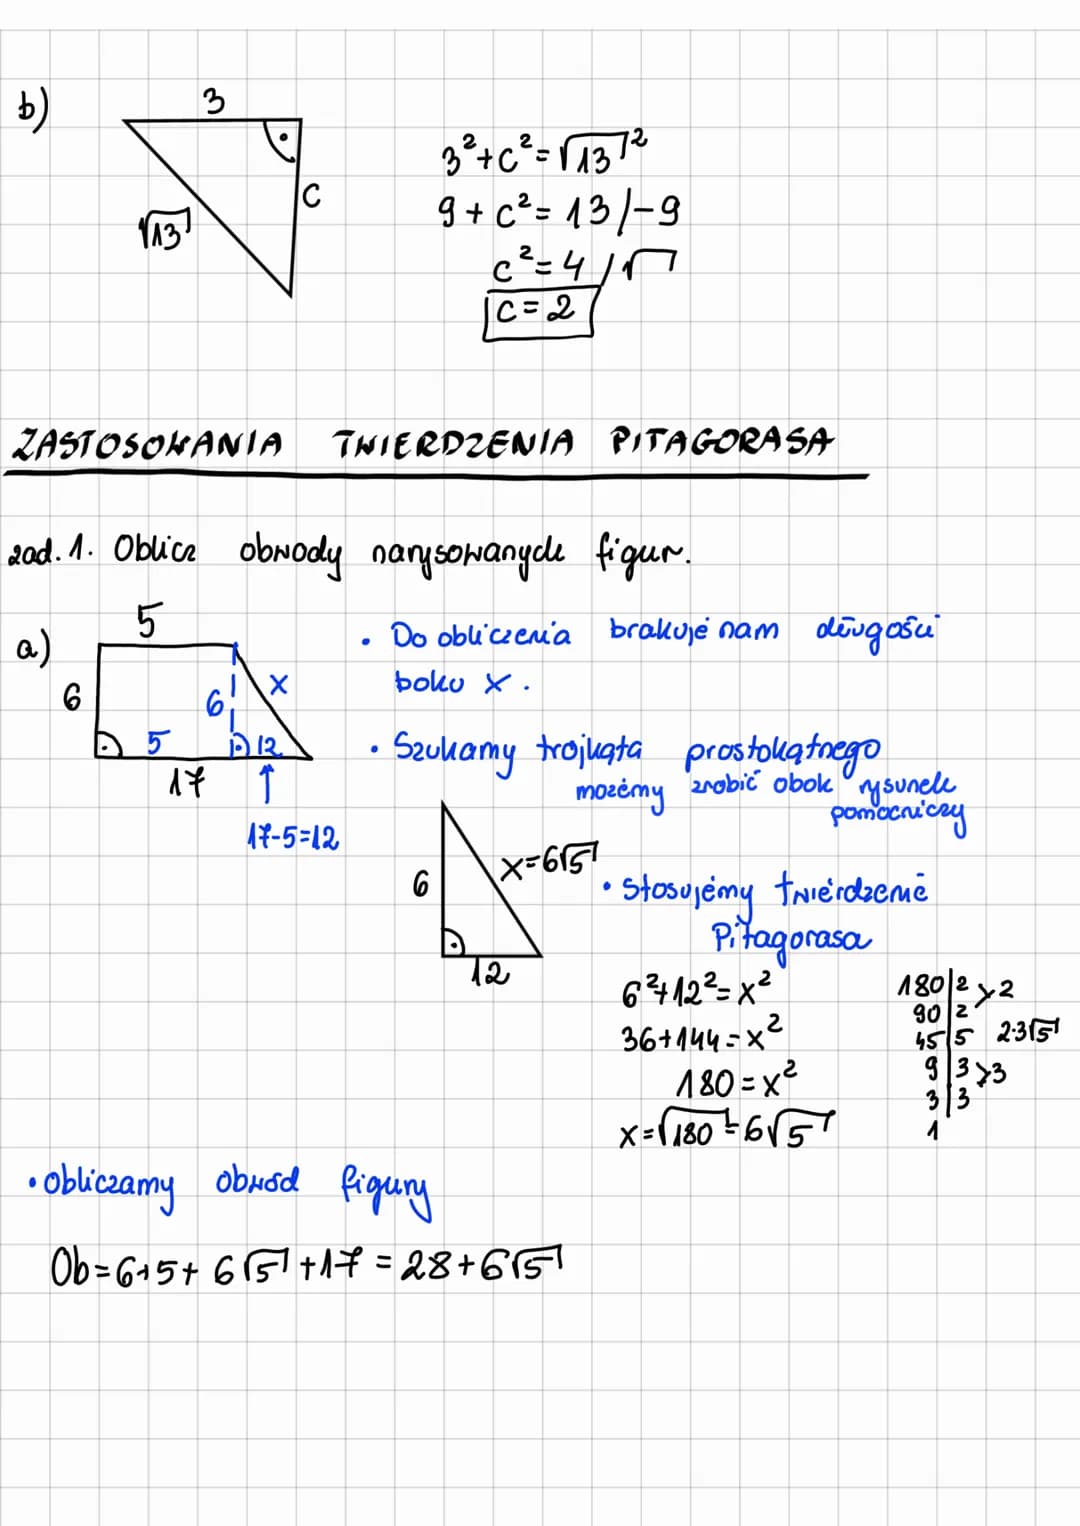 b)
3
√13
c
3²+c²=√13²
9+c²=13/-9
c²=4/√
c=2
ZASTOSOWANIA TWIERDZENIA PITAGORASA
zad. 1. Oblicz obwody narysowanych figur.
a)
5
6
6
x
5
12
17
17-5=12
• Do obliczenia brakuje nam długości
boku x.
• Szukamy trojkąta prostokątnego
możemy zrobić obok rysunek
pomocniczy
6
x=6√5
12
• Stosujemy twierdzenie
Pitagorasa
6²+12²=x²
36+144=x²
180=x²
x=√180=6√5
180|2 >2
90|2
45|5 2·3√5
9|3 >3
3|3
1
• Obliczamy obwód figury
Ob=6+5+6√5+17=28+6√5